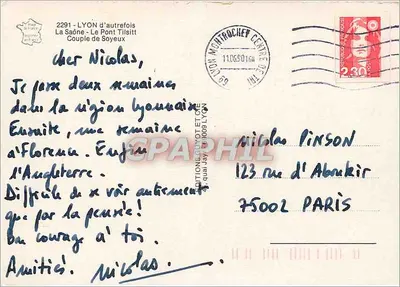 2291 - LYON d'autrefois
La Saône - Le Pont Tilsitt
Couple de Soyeux
cher Nicolas,
Je passe deux semaines
dans la région lyonnaise
Ensuite, une semaine
à Florence. Enfin
l'Angleterre.
Difficile de se voir autrement
que par la pensée!
bon courage à toi.
Amitiés. Nicolas.
69 LYON MONTROCHET CENTRE DE TRI
11.06.90
2,30
Nicolas PINSON
123 rue d'Aboukir
75002 PARIS
69009 LYON
CPARAPHIL